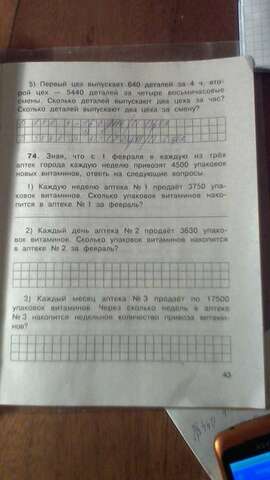 5) Первый цех выпускает 640 деталей за 4 ч, вто-
рой цех — 5440 деталей за четыре восьмичасовые
смены. Сколько деталей выпускают два цеха за час?
Сколько деталей выпускают два цеха за смену?
74. Зная, что с 1 февраля в каждую из трёх
аптек города каждую неделю привозят 4500 упаковок
новых витаминов, ответь на следующие вопросы.
1) Каждую неделю аптека № 1 продаёт 3750 упа-
ковок витаминов. Сколько упаковок витаминов нако-
пится в аптеке № 1 за февраль?
2) Каждый день аптека № 2 продаёт 3630 упако-
вок витаминов. Сколько упаковок витаминов накопится
в аптеке № 2 за февраль?
3) Каждый месяц аптека № 3 продаёт по 17500
упаковок витаминов. Через сколько недель в аптеке
№ 3 накопится недельное количество привоза витами-
нов?
43